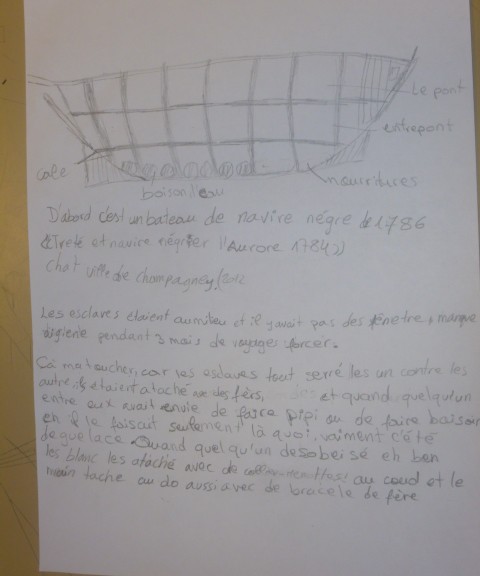 le pont
entrepont
cale
nourritures
boison l'eau
D'abord c'est un bateau de navire négre de 1786
«Treté et navire négrier l'Aurore 1784»
chat ville de champagney/2012
Les esclaves étaient au milieu et il yavait pas des fenetre, manque
digiene pendant 3 mais de voyages forcer.
Ça ma toucher, car les esclaves tout serré les un contre les
autre, ils étaient ataché avec des fèrs, et quand quelqu'un
entre eux avait envie de faire pipi ou de faire baisoin
eh il le faisait seulement là quoi, vaiment c'été
deguelace. Quand quelqu'un desobeisé eh ben
les blanc les ataché avec de menottes au coud et le
main tache au do aussi avec de bracele de fère